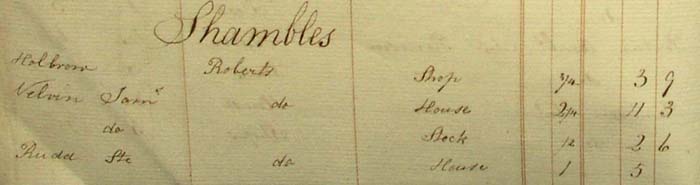 Shambles
Holbrow Roberts Shop 3/4 3 9
Velvin Saml do House 2 1/4 11 3
do Stock 1/2 2 6
Rudd Ste do House 1 5